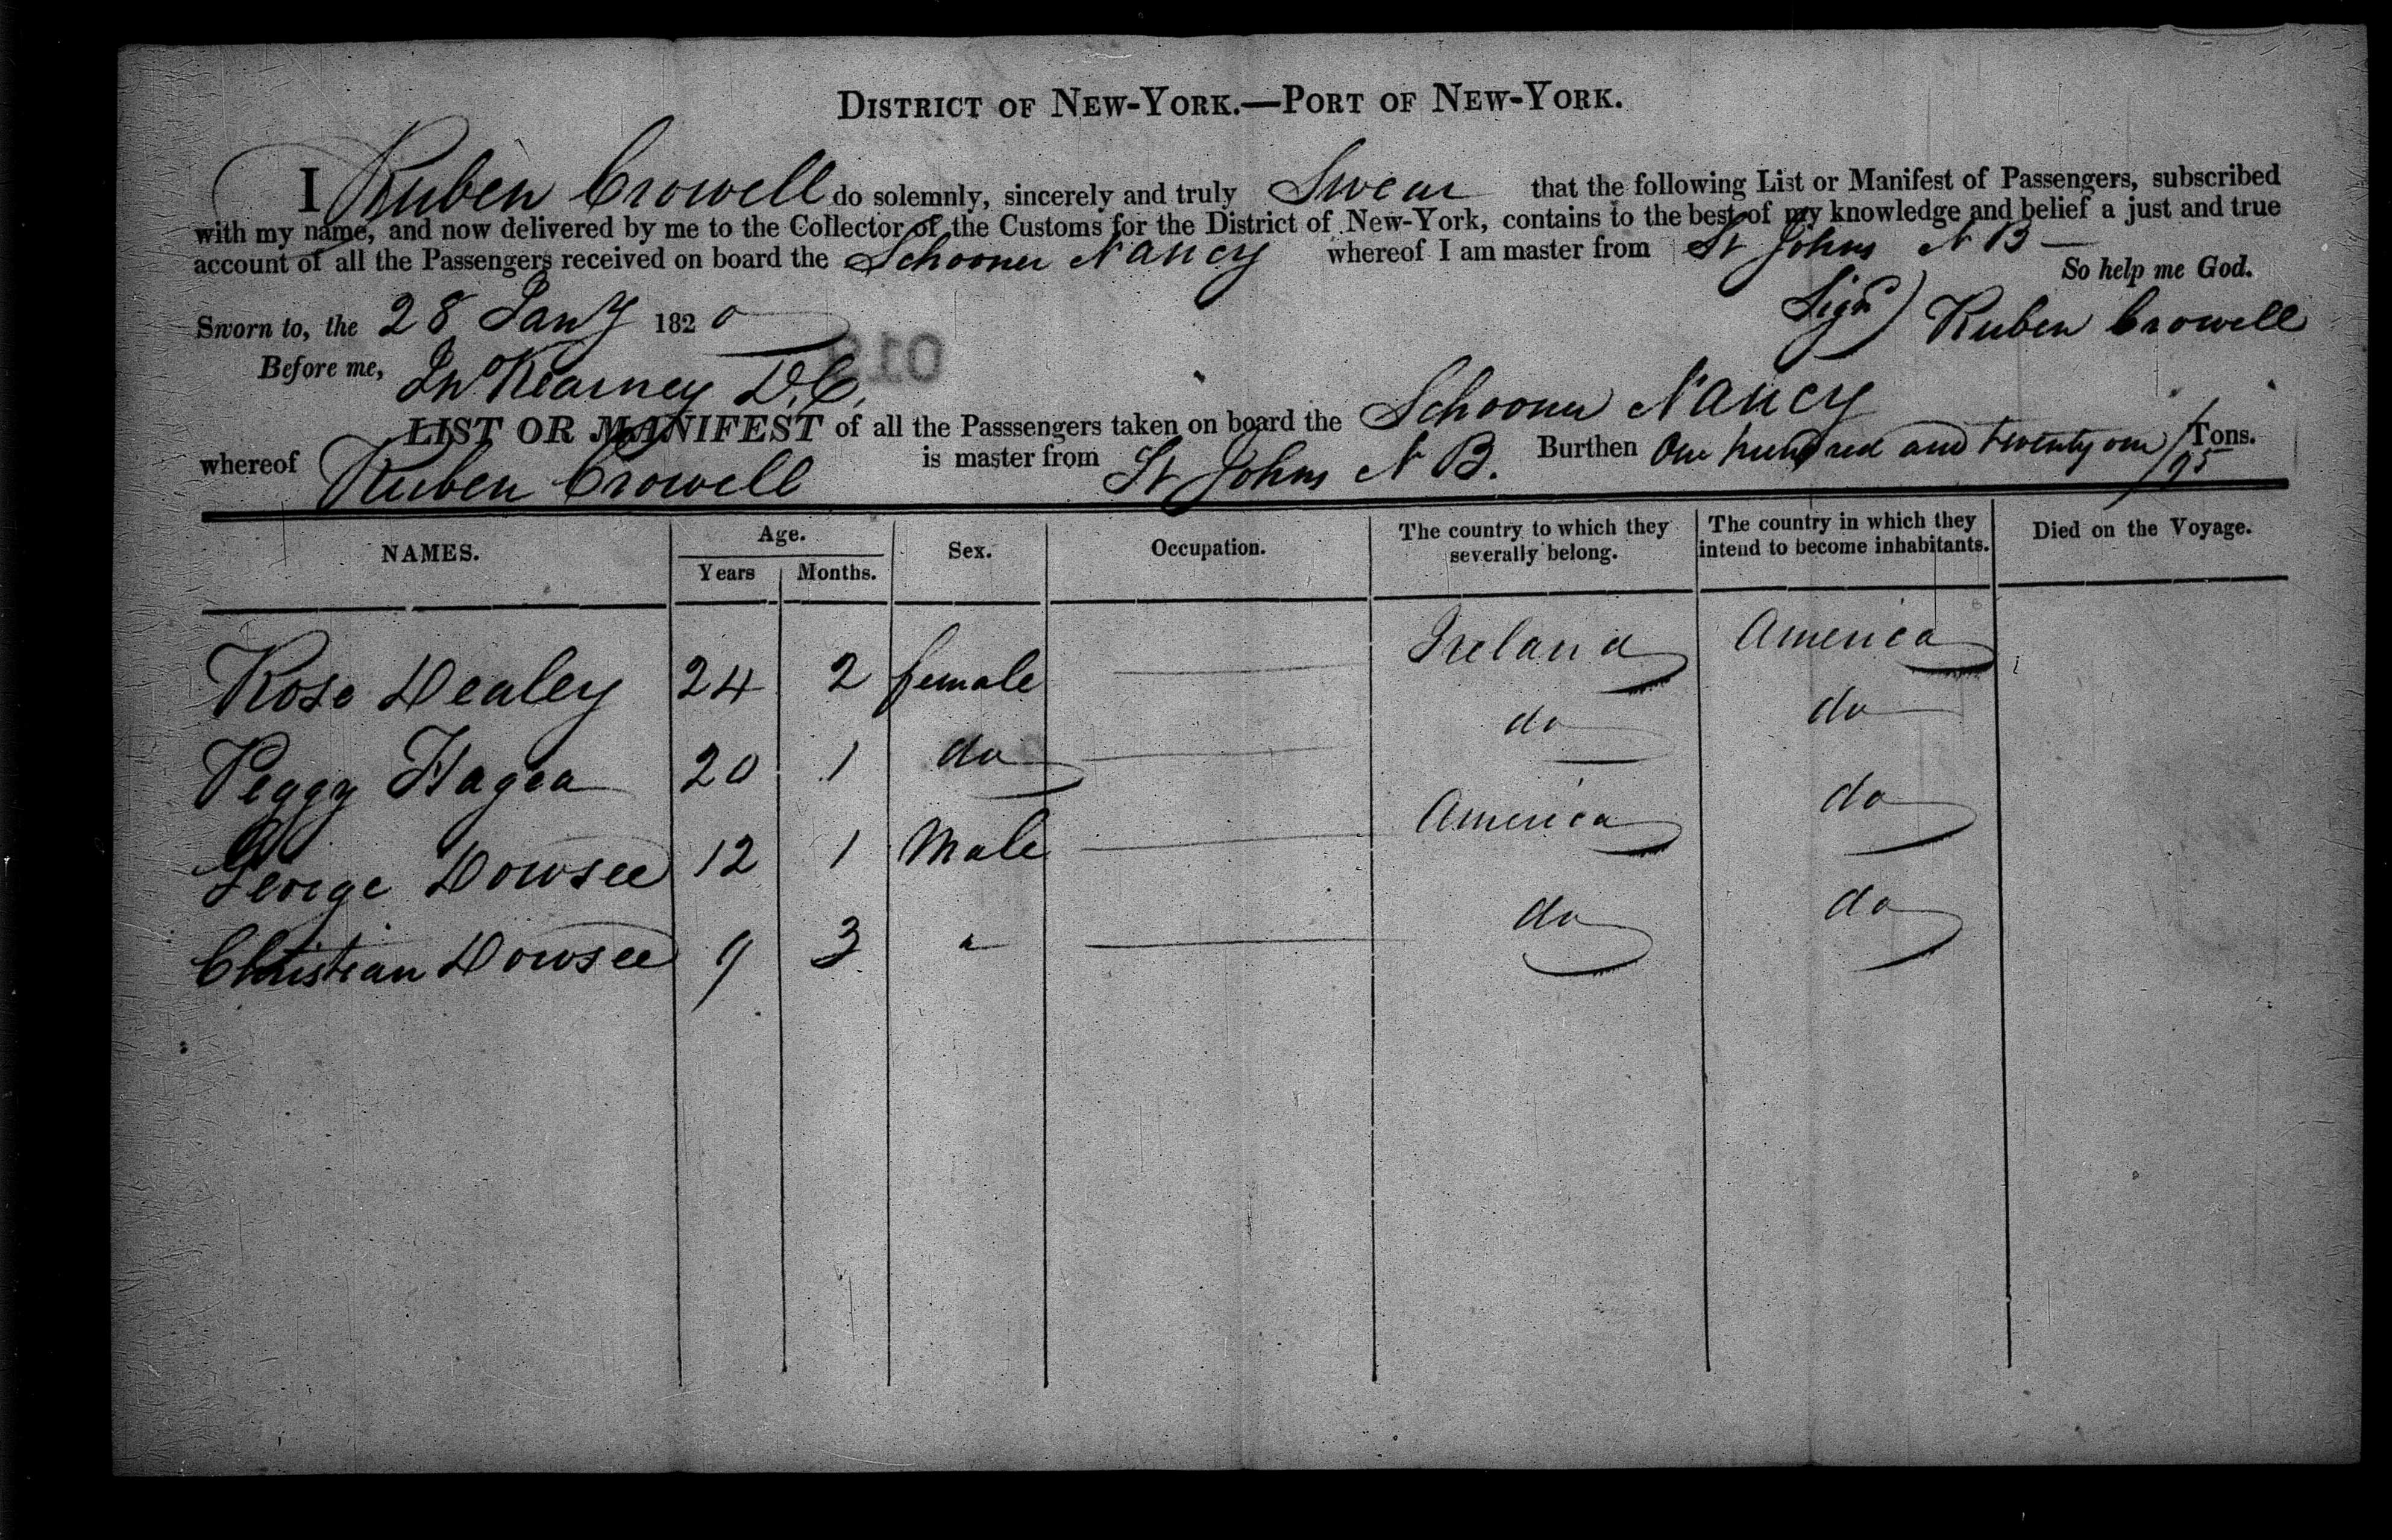 DISTRICT OF NEW-YORK.—PORT OF NEW-YORK.
I Ruben Crowell do solemnly, sincerely and truly Swear that the following List or Manifest of Passengers, subscribed
with my name, and now delivered by me to the Collector of the Customs for the District of New-York, contains to the best of my knowledge and belief a just and true
account of all the Passengers received on board the Schooner Nancy whereof I am master from St Johns N B —
So help me God.
Sworn to, the 28 Jany 1820 Signd) Ruben Crowell
Before me, Jn Kearney D.C.
LIST OR MANIFEST of all the Passsengers taken on board the Schooner Nancy
whereof Ruben Crowell is master from St Johns N B. Burthen One hundred and twenty one /95 Tons.
NAMES. Age. Years Months. Sex. Occupation. The country to which they severally belong. The country in which they intend to become inhabitants. Died on the Voyage.
Rose Dealey 24 2 female — Ireland America
Peggy Hagea 20 1 do — do do
George Dowsee 12 1 Male — America do
Christian Dowsee 9 3 " — do do